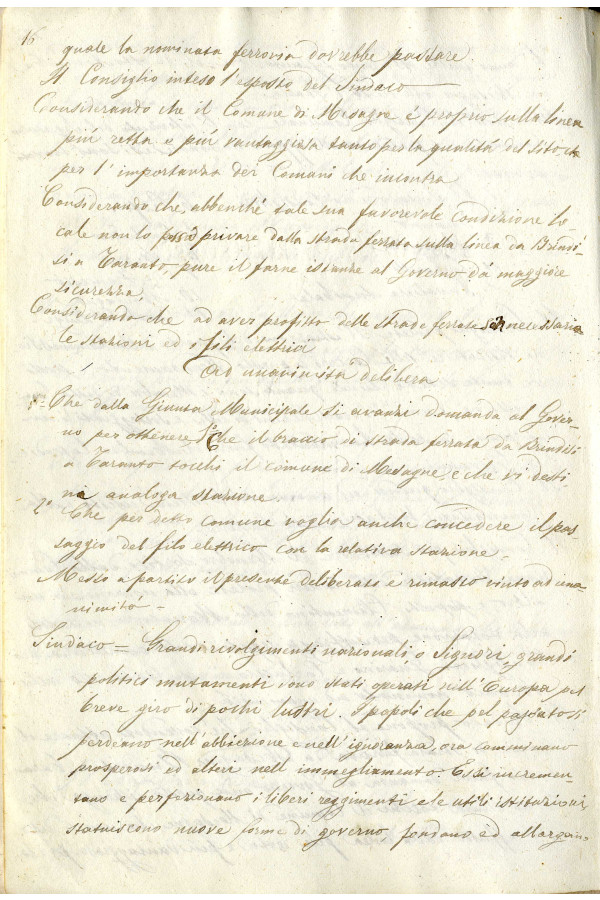 16
quale la nominata ferrovia dovrebbe passare.
Il Consiglio inteso l'esposto del Sindaco
Considerando che il Comune di Mesagne è proprio sulla linea
più retta e più vantaggiosa tanto per la qualità del sito, che
per l'importanza dei Comuni che incontra
Considerando che, abbenché tale sua favorevole condizione lo
cale non lo possa privare dalla strada ferrata sulla linea da Brindi-
si a Taranto, pure il farne istanze al Governo dà maggiore
sicurezza,
Considerando che ad aver profitto delle strade ferrate son necessarie
le stazioni ed i fili elettrici
Ad unanimità delibera
1° Che dalla Giunta Municipale si avanzi domanda al Gover-
no per ottenere che il braccio di strada ferrata da Brindisi
a Taranto tocchi il comune di Mesagne, e che vi desti
na analoga stazione.
2° Che per detto comune voglia anche concedere il pas-
saggio del filo elettrico con la relativa stazione.
Messo a partito il presente deliberato è rimasto vinto ad una-
nimità -
Sindaco = Grandi rivolgimenti nazionali, o Signori, grandi
politici mutamenti sono stati operati nell'Europa pel
breve giro di pochi lustri. I popoli che pel passato si
perdeano nell'abbiezione e nell'ignoranza, ora camminano
prosperosi ed alteri nell'immegliamento. Essi incremen-
tano e perfezionano i liberi reggimenti e le utili istituzioni,
statuiscono nuove forme di governo, fondano ed allargano